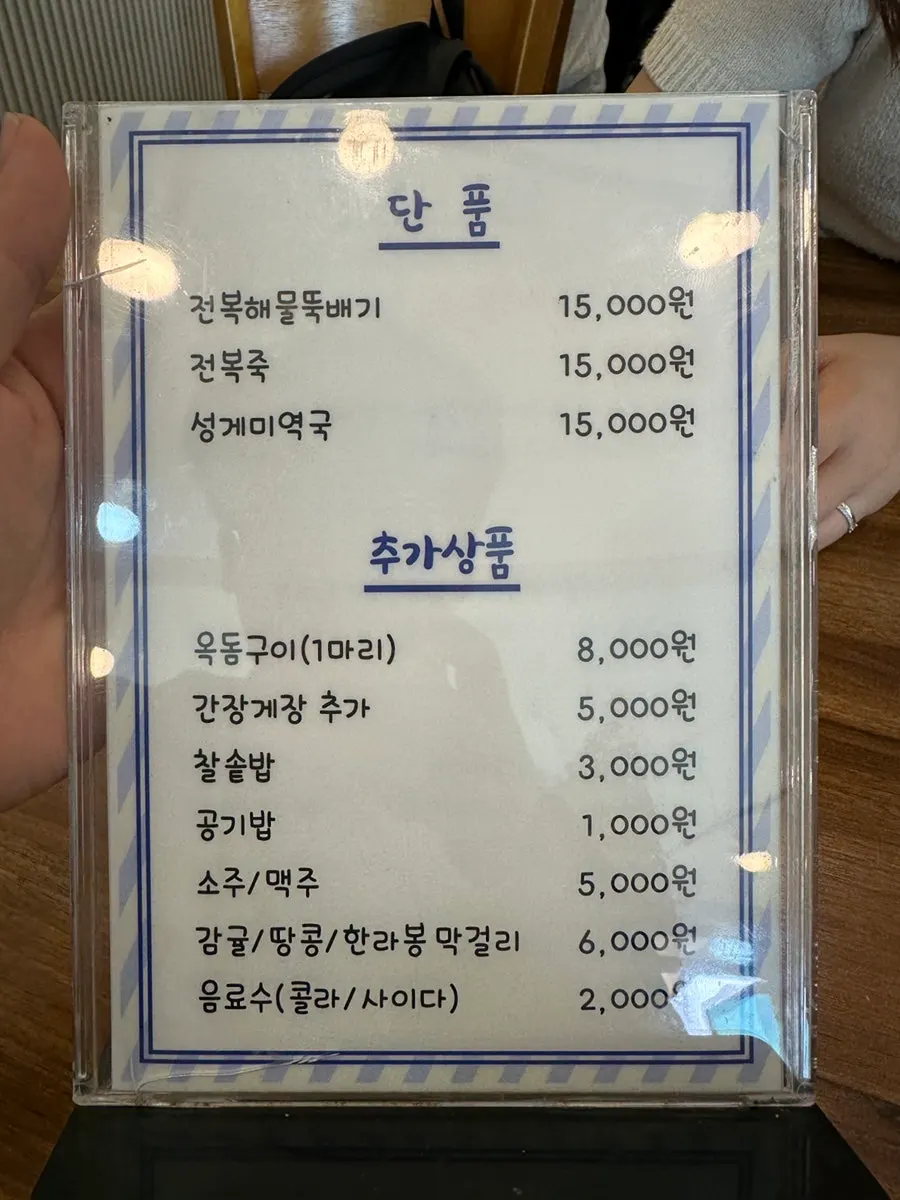 단 품
전복해물뚝배기 15,000원
전복죽 15,000원
성게미역국 15,000원
추가상품
옥돔구이(1마리) 8,000원
간장게장 추가 5,000원
찰솥밥 3,000원
공기밥 1,000원
소주/맥주 5,000원
감귤/땅콩/한라봉 막걸리 6,000원
음료수(콜라/사이다) 2,000원